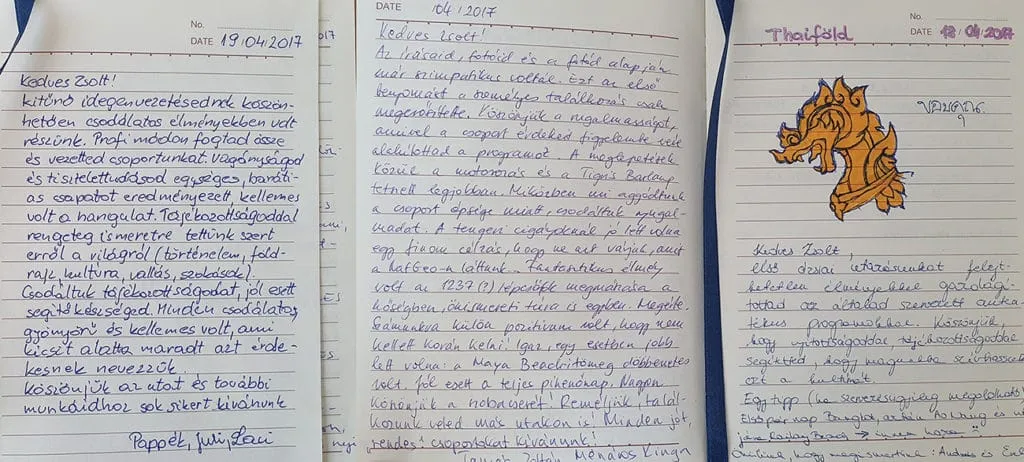 No.
DATE 19/04/2017
Kedves Zsolt!
kitűnő idegenvezetésednek köszön-
hetően csodálatos élményekben volt
részünk. Profi módon fogtad össze
és vezetted csoportunkat. Vagányságod
és tisztelettudásod egységes, baráti-
as csapatot eredményezett, kellemes
volt a hangulat. Tájékozottságoddal
rengeteg ismeretre tettünk szert
erről a világról (történelem, föld-
rajz, kultúra, vallás, szokások).
Csodáltuk tájékozottságodat, jól esett
segítőkészséged. Minden csodálatos,
gyönyörű és kellemes volt, ami
kicsit alatta maradt azt érde-
kesnek nevezzük.
köszönjük az utat és további
munkáidhoz sok sikert kívánunk
Pappék, Juli, Laci
DATE /04/2017
Kedves Zsolt!
Az írásaid, fotóid és a fotód alapján
már szimpatikus voltál. Ezt az első
benyomást a személyes találkozás csak
megerősítette. Köszönjük a rugalmasságot,
amivel a csoport érdekeit figyelembe véve
alakítottad a programot. A meglepetések
közül a motorozás és a Tigris Barlang
tetszett legjobban. Miközben mi aggódtunk
a csoport épsége miatt, csodáltuk nyugal-
madat. A tengeri cigányoknál jó lett volna
egy finom célzás, hogy ne azt várjuk, amit
a NatGeo-n láttunk. Fantasztikus élmény
volt az 1237 (?) lépcsőfok megmászása a
hőségben, önismereti túra is egyben. Megérte.
Számunkra külön pozitívum volt, hogy nem
kellett korán kelni! Igaz, egy esetben jobb
lett volna: a Maya Beach-i tömeg döbbenetes
volt. Jól esett a teljes pihenőnap. Nagyon
köszönjük a szobacserét! Reméljük, talál-
kozunk veled más utakon is! Minden jót,
rendes csoportokat kívánunk!
Zoltán Ménáros Kinga
Thaiföld
No.
DATE 18/04/2017
Kedves Zsolt,
első ázsiai utazásunkat felejt-
hetetlen élményekkel gazdagí-
tottad az általad szervezett auten-
tikus programokkal. Köszönjük,
hogy nyitottságoddal, tájékozottságoddal
segítettél, hogy magunkba szívhassuk
ezt a kultúrát.
Egy tipp (ha szervezésügyileg megoldható)
Első pár nap Bangkok, aztán és
Railay Beach →
hogy megismertünk: András és